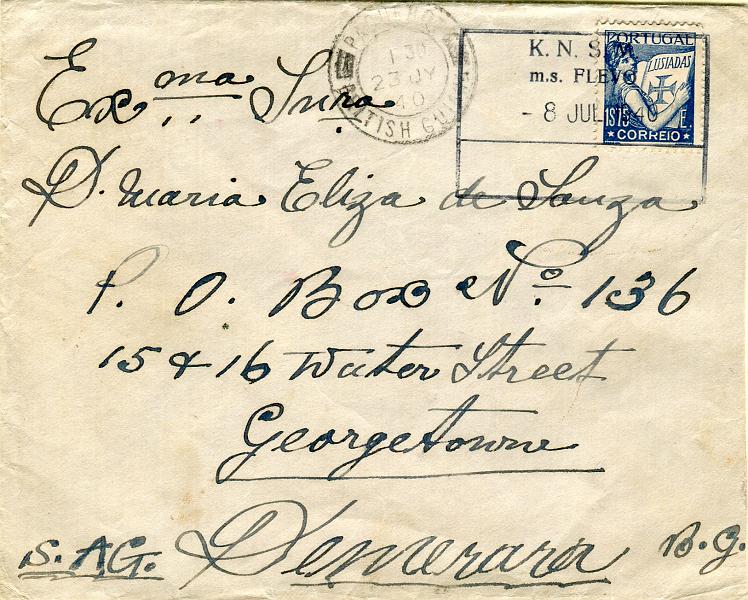 K. N. S. M.
m.s. FLEVO
- 8 JUL 1940
PORTUGAL
LUSIADAS
1$75 E.
* CORREIO *
23 JY
40
BRITISH GUI
Exma Snra
D. Maria Eliza de Souza
P. O. Box No. 136
15 & 16 Water Street
Georgetowne
S. AG. Demerara B.G.